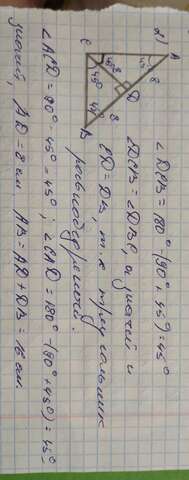 2)
A
C
B
D
8
8
45°
45°
45°
45°
∠DCB = 180° - (90° + 45°) = 45°
∠DCB = ∠DBC, а значит и
CD = DB, т.к. треугольник
равнобедренный.
∠ACD = 90° - 45° = 45°; ∠CAD = 180° - (90° + 45°) = 45°
значит, AD = 8 см. AB = AD + DB = 16 см.